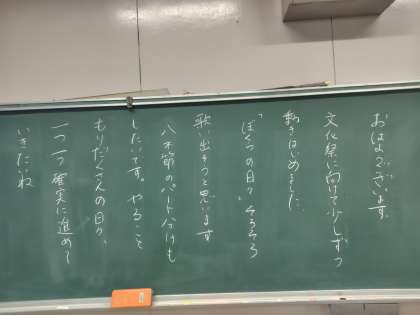 おはよございます。
文化祭に向けて少しずつ
動きはじめました。
「ぼくらの日々」そろそろ
歌い出そうと思います
八木節のパート分けも
したいです。やること
もりだくさんの日々、
一つ一つ確実に進めて
いきたいね